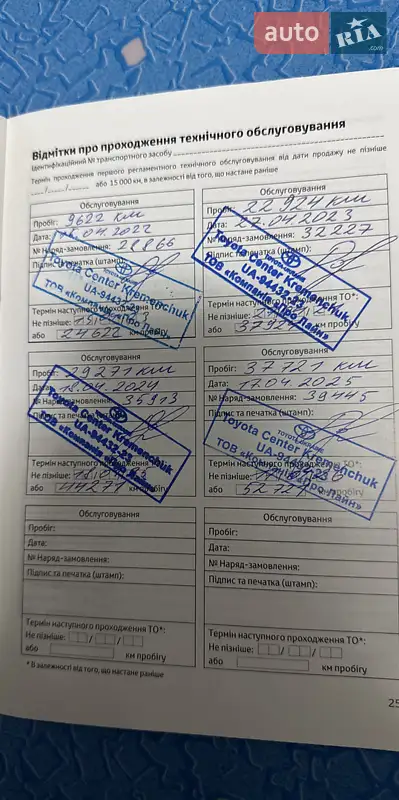 auto RIA .com
Відмітки про проходження технічного обслуговування
Ідентифікаційний № транспортного засобу
Термін проходження першого регламентного технічного обслуговування від дати продажу не пізніше
або 15 000 км, в залежності від того, що настане раніше
Обслуговування
Пробіг: 9622 км
Дата: .04.2022
№ Наряд-замовлення: 28866
Підпис та печатка (штамп):
TOYOTA CENTER
Toyota Center Kremenchuk
UA-94432-23
ТОВ «Компанія «Про Лайн»
Термін наступного проходження ТО*:
Не пізніше:
або 24622 км пробігу
Обслуговування
Пробіг: 22 924 км
Дата: 27.04.2023
№ Наряд-замовлення: 32227
Підпис та печатка (штамп):
Toyota Center Kremenchuk
UA-94432-23
ТОВ «Компанія «Про Лайн»
Термін наступного проходження ТО*:
Не пізніше:
або 37924 км пробігу
Обслуговування
Пробіг: 29271 км
Дата: 18.04.2024
№ Наряд-замовлення: 35913
Підпис та печатка (штамп):
Toyota Center Kremenchuk
UA-94432-23
ТОВ «Компанія «Про Лайн»
Термін наступного проходження ТО*:
Не пізніше:
або 44271 км пробігу
Обслуговування
Пробіг: 37721 км
Дата: 17.04.2025
№ Наряд-замовлення: 39445
Підпис та печатка (штамп):
TOYOTA CENTER
Toyota Center Kremenchuk
UA-94432-23
ТОВ «Компанія «Про Лайн»
Термін наступного проходження ТО*:
Не пізніше:
або 52721 км пробігу
Обслуговування
Пробіг:
Дата:
№ Наряд-замовлення:
Підпис та печатка (штамп):
Термін наступного проходження ТО*:
Не пізніше: / /
або км пробігу
Обслуговування
Пробіг:
Дата:
№ Наряд-замовлення:
Підпис та печатка (штамп):
Термін наступного проходження ТО*:
Не пізніше: / /
або км пробігу
* В залежності від того, що настане раніше